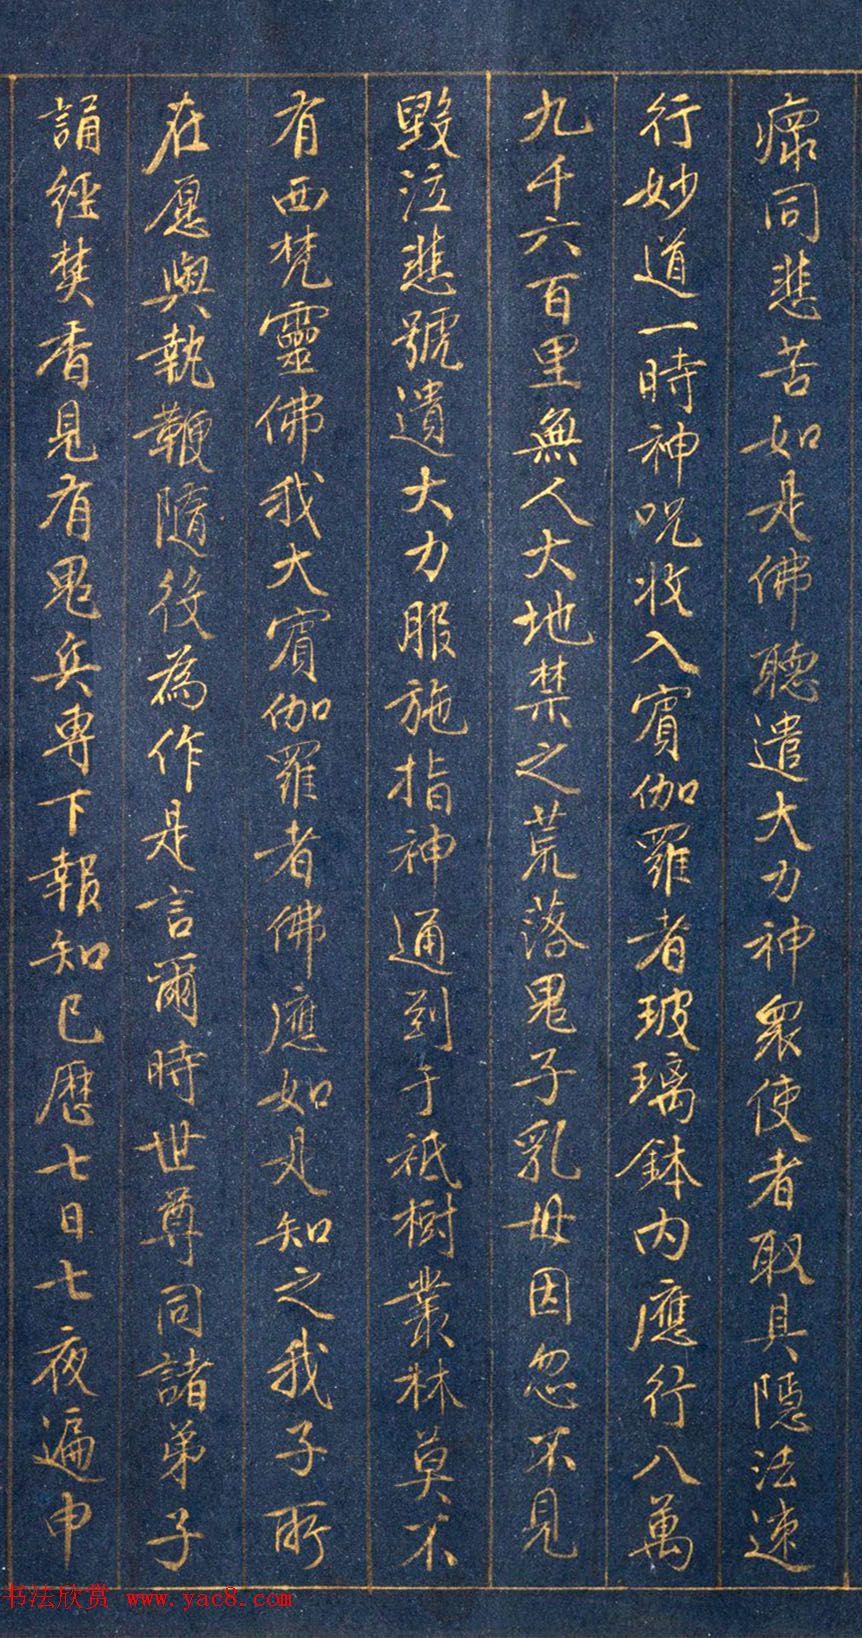 瘝同悲苦如是佛聽遣大力神眾使者取具隱法速
行妙道一時神咒收入賓伽羅者玻璃鉢內應行八萬
九千六百里無人大地禁之荒落鬼子乳母因忽不見
毀泣悲號遺大力服施指神通到于祇樹叢林莫不
有西梵靈佛我大賓伽羅者佛應如是知之我子所
在愿與執鞭隨後為作是言爾時世尊同諸弟子
誦經焚香見有鬼兵專下報知已歷七日七夜遍申
书法欣赏 www.yac8.com